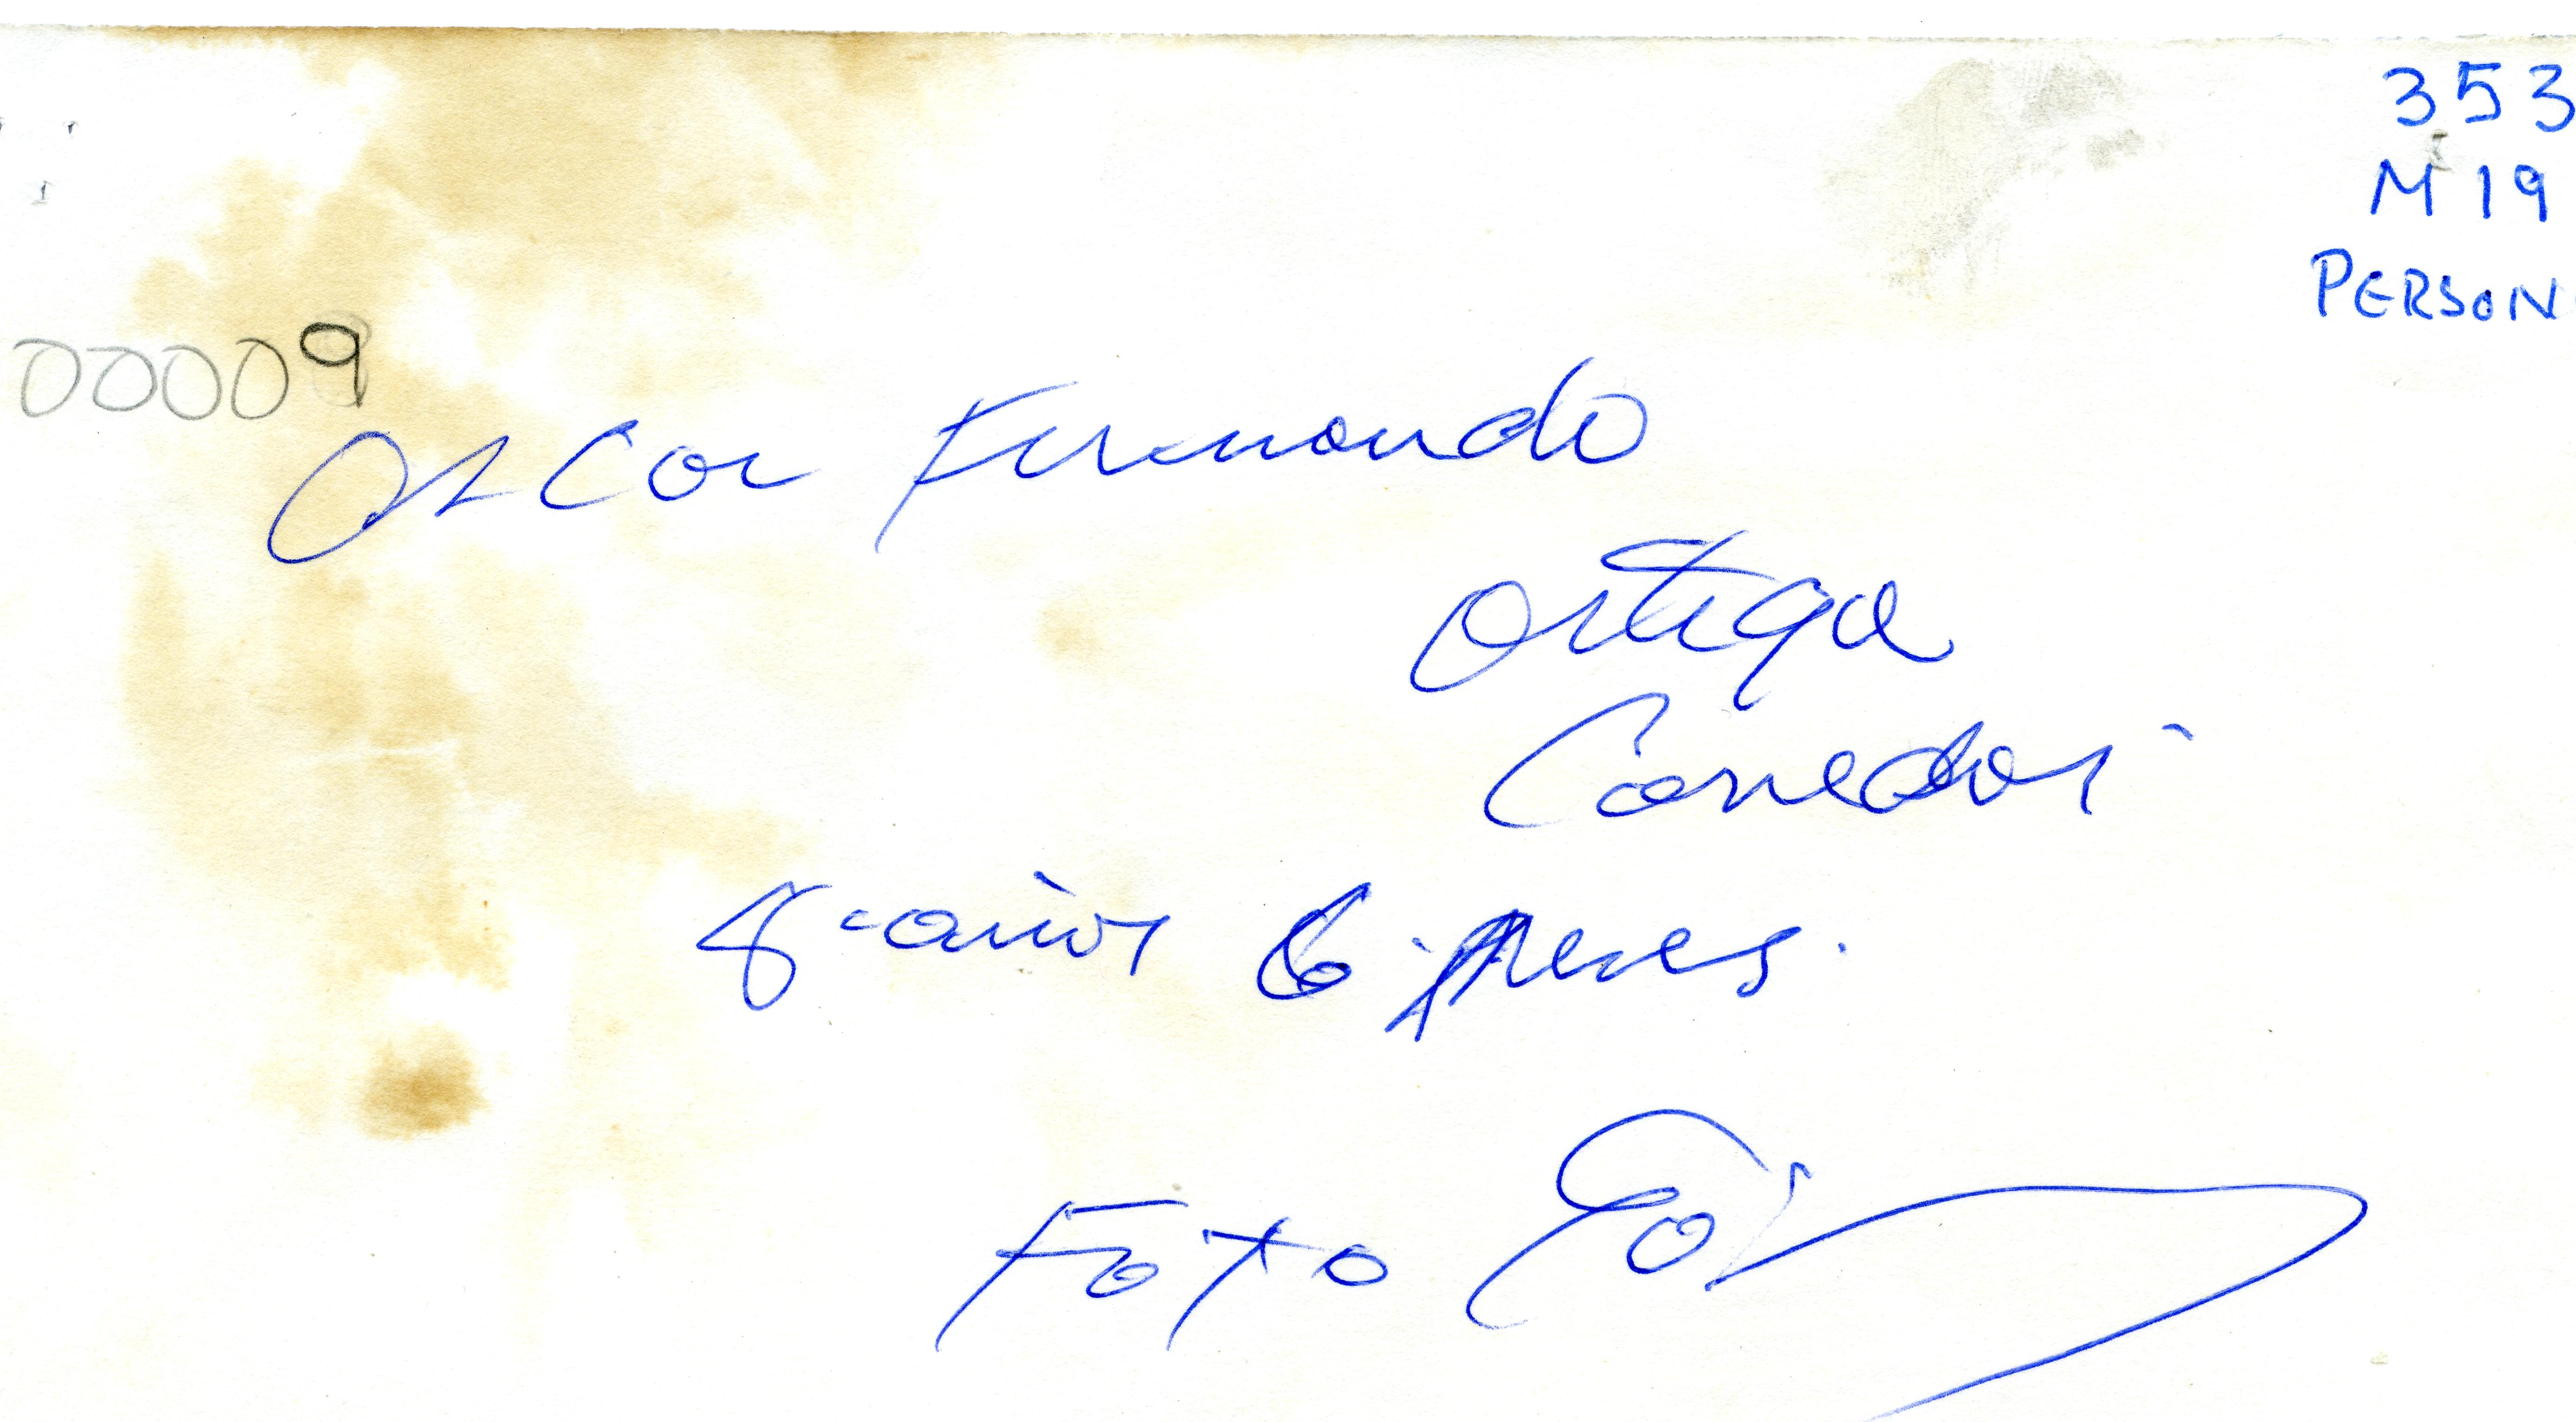 353
M19
PERSON
00009
Oscar Fernando
Ortega
Corredor
8 años 6 meses.
Foto